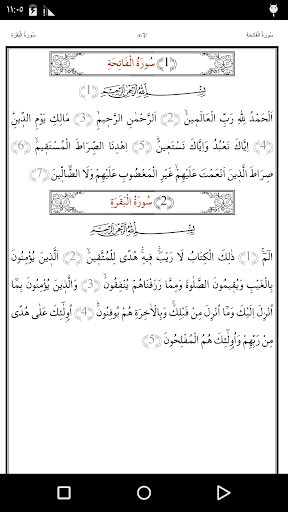 ١١:٠٥
سُورَةُ الْفَاتِحَةِ
سُورَةُ الْبَقَرَةِ
(1) سُورَةُ الْفَاتِحَةِ
بِسْمِ اللّٰهِ الرَّحْمٰنِ الرَّحِيمِ (1)
اَلْحَمْدُ لِلّٰهِ رَبِّ الْعَالَمِينَۙ (2) اَلرَّحْمٰنِ الرَّح۪يمِۙ (3) مَالِكِ يَوْمِ الدّ۪ينِۜ
(4) اِيَّاكَ نَعْبُدُ وَاِيَّاكَ نَسْتَع۪ينُۜ (5) اِهْدِنَا الصِّرَاطَ الْمُسْتَق۪يمَۙ (6)
صِرَاطَ الَّذ۪ينَ اَنْعَمْتَ عَلَيْهِمْۙ غَيْرِ الْمَغْضُوبِ عَلَيْهِمْ وَلَا الضَّٓالّ۪ينَ (7)
(2) سُورَةُ الْبَقَرَةِ
بِسْمِ اللّٰهِ الرَّحْمٰنِ الرَّحِيمِ
الٓمٓۜ (1) ذٰلِكَ الْكِتَابُ لَا رَيْبَۚۛ ف۪يهِۚۛ هُدًى لِلْمُتَّق۪ينَۙ (2) اَلَّذ۪ينَ يُؤْمِنُونَ
بِالْغَيْبِ وَيُق۪يمُونَ الصَّلٰوةَ وَمِمَّا رَزَقْنَاهُمْ يُنْفِقُونَۙ (3) وَالَّذ۪ينَ يُؤْمِنُونَ بِمَٓا
اُنْزِلَ اِلَيْكَ وَمَٓا اُنْزِلَ مِنْ قَبْلِكَۚ وَبِالْاٰخِرَةِ هُمْ يُوقِنُونَۜ (4) اُو۬لٰٓئِكَ عَلٰى هُدًى
مِنْ رَبِّهِمْ وَاُو۬لٰٓئِكَ هُمُ الْمُفْلِحُونَ (5)